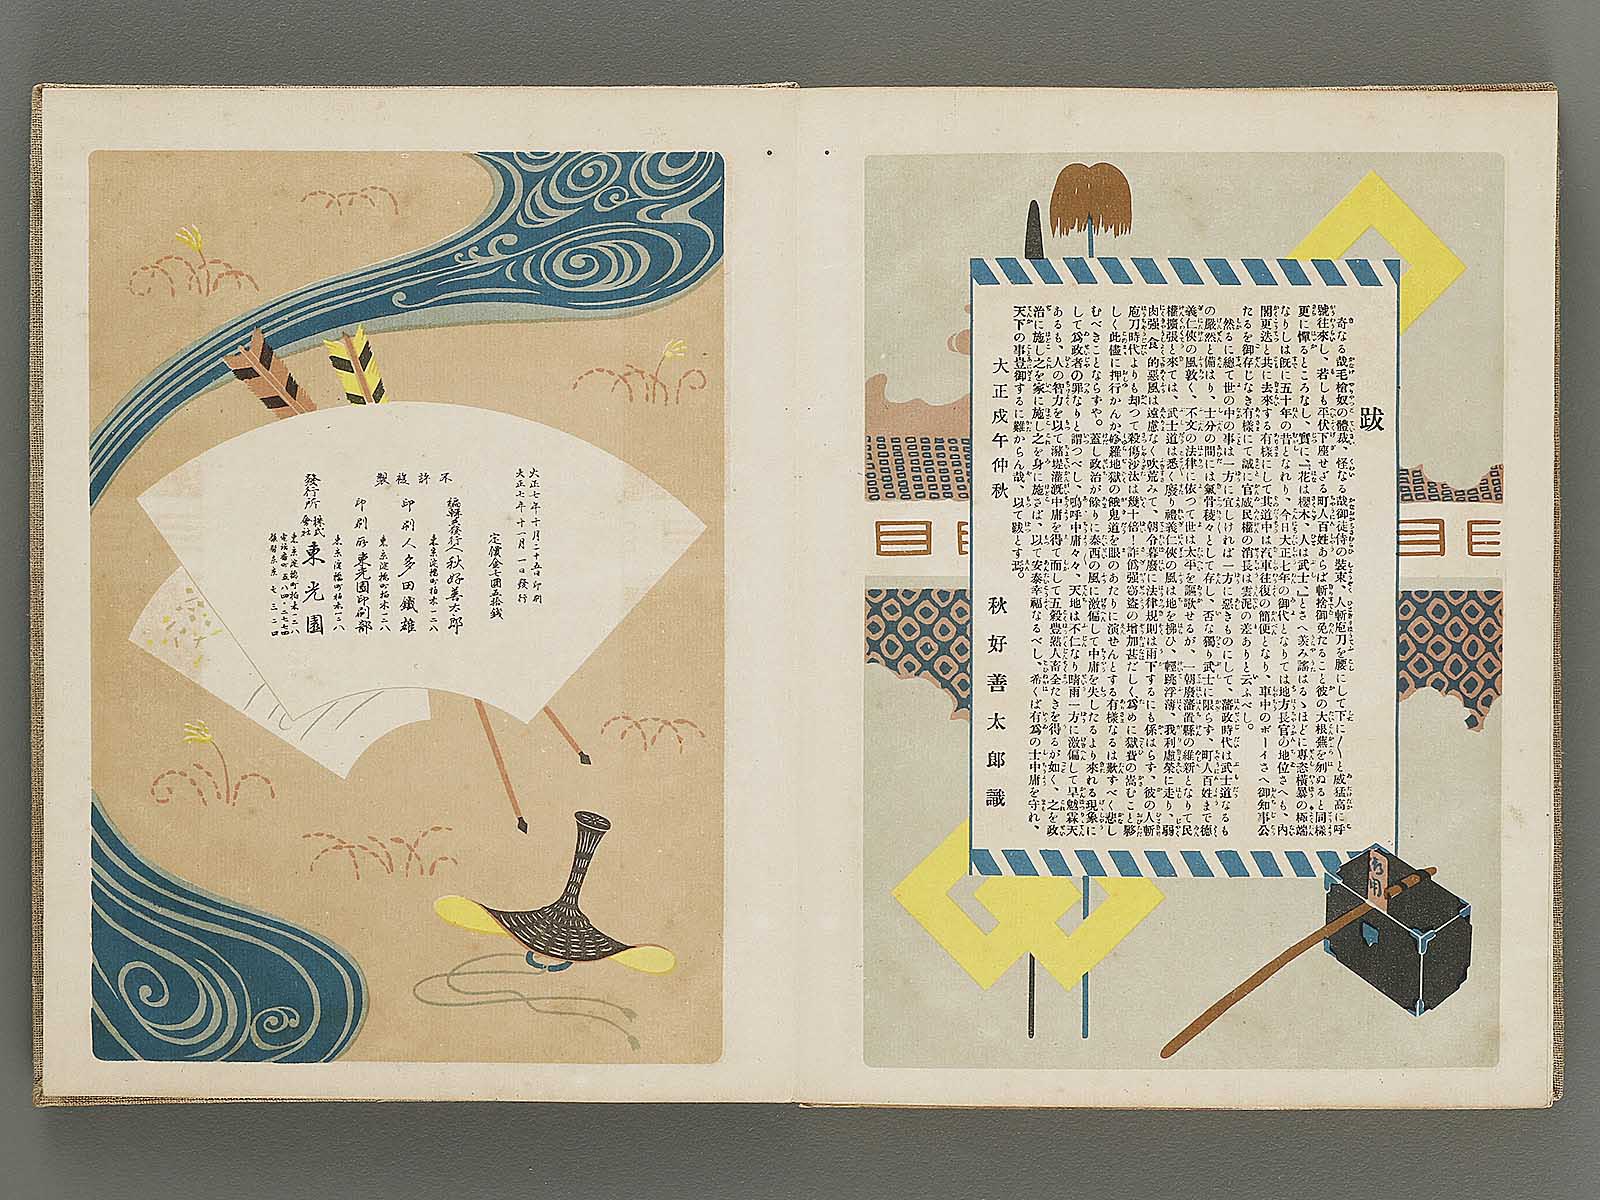 跋
奇なる哉毛槍奴の體裁、怪なる哉御徒侍の裝束、人斬庖刀を腰にして下に〱と威猛高に呼
號往來し、若しも平伏下座せざる町人百姓あらば斬捨御免たること彼の大根蕪を刻ぬると同樣
更に憚るところなし、實に『花は櫻木、人は武士』とさへ羨み謠はるゝほどに專恣橫暴の極端
なりしは旣に五十年の昔となれり、今日大正七年の御代となりては地方長官の地位さへも、內
閣更迭と共に去來する有樣にして其道中は汽車往復の簡便となり、車中のボーイさへ御知事公
たるを御存じなき有樣にて誠に官威民權の消長は雲泥の差ありと云ふべし。
然るに總て世の中の事は一方に宜しければ一方に惡きものにして、藩政時代は武士道なるも
の嚴然と備はり、士分の間には氣骨稜々として存し、否な獨り武士に限らず、町人百姓まで德
義仁俠の風敦く、不文の法律に依つて世は太平を謳歌せるが、一朝廢藩置縣の維新となりて民
權擴張と來ては、武士道は悉く廢り禮義仁俠の風は地を拂ひ、輕跳浮薄、我利虛榮に走り、弱
肉强食的惡風は遠慮なく吹荒みて、朝令暮廢に法律規則は雨下するにも係はらず、彼の人斬
庖刀時代よりも却つて殺傷沙汰は幾十倍!詐僞强窃盜の增加甚だしく、爲めに獄費の嵩むこと夥
しく此儘に押行かんか修羅地獄の餓鬼道を眼のあたりに演ぜんとする有樣なるは歎ずべく悲し
むべきことならずや。蓋し政治が餘りに泰西の風に激偏して中庸を失したるより來れる現象に
して爲政者の罪なりと謂つべし、嗚呼中庸々々、天地は不仁なり晴雨一方に激偏して旱魃霖天
あるも、人の智力を以て瀦堤灌漑中庸を得て而して五穀豐熟人畜全たきを得るが如く、之を政
治に施し之を家に施し之を身に施さば、以て安泰幸福なるべし、希くば有爲の士中庸を守れ、
天下の事豈御するに難からん哉、以て跋とす焉。
大正戊午仲秋
秋好善太郎識
御用
大正七年十月二十五日印刷
大正七年十一月一日發行
定價金七圓五拾錢
不許複製
東京淀橋町柏木一二八
編輯兼發行人 秋好善太郎
東京淀橋町柏木一二八
印刷人 多田鐵雄
東京淀橋町柏木一二八
印刷所 東光園印刷部
發行所 株式會社 東光園
東京淀橋町柏木一二八